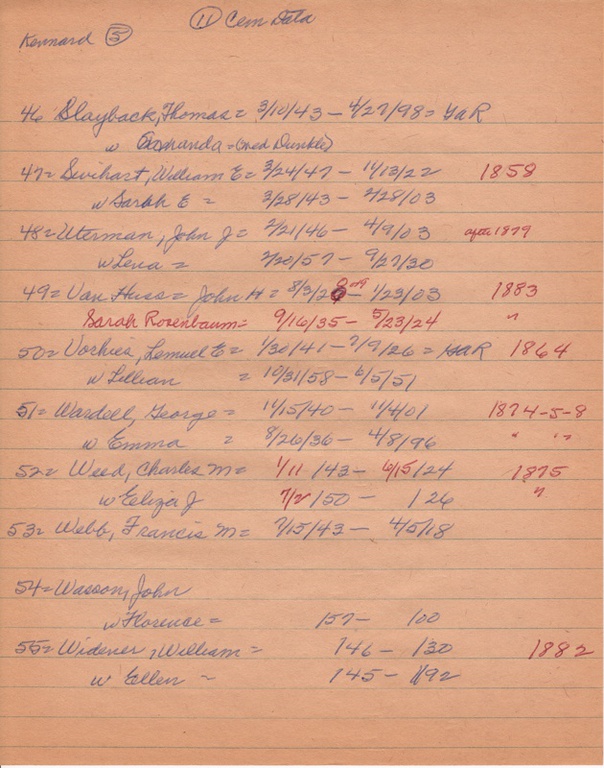 Kennard (5) (11) Cem Data
46 Slayback, Thomas = 3/10/43 - 4/27/98 = GaR
w Amanda = (Med Dunkle)
47 = Swihart, William E = 3/24/47 - 11/13/22 1858
w Sarah E = 3/28/43 - 2/28/03
48 = Uterman, John J = 2/21/46 - 4/9/03 after 1879
w Lena = 2/20/57 - 9/27/30
49 = Van Huss = John H = 8/3/2 - 1/23/03 1883
Sarah Rosenbaum = 9/16/35 - 5/23/24 "
50 = Vorhies, Lemuel E = 1/30/41 - 7/9/26 = GaR 1864
w Lillian = 10/31/58 - 6/5/51
51 = Wardell, George = 11/15/40 - 11/4/01 1874-5-8
w Emma = 8/26/36 - 4/8/96 " "
52 = Weed, Charles M = 1/11/43 - 6/15/24 1875
w Eeliza J 7/2/50 - / 26 "
53 = Webb, Francis M = 7/15/43 - 4/5/18
54 = Wasson, John
w Florense = /57 - /00
55 = Widener, William = /46 - /30 1882
w Ellen - /45 - 1/92